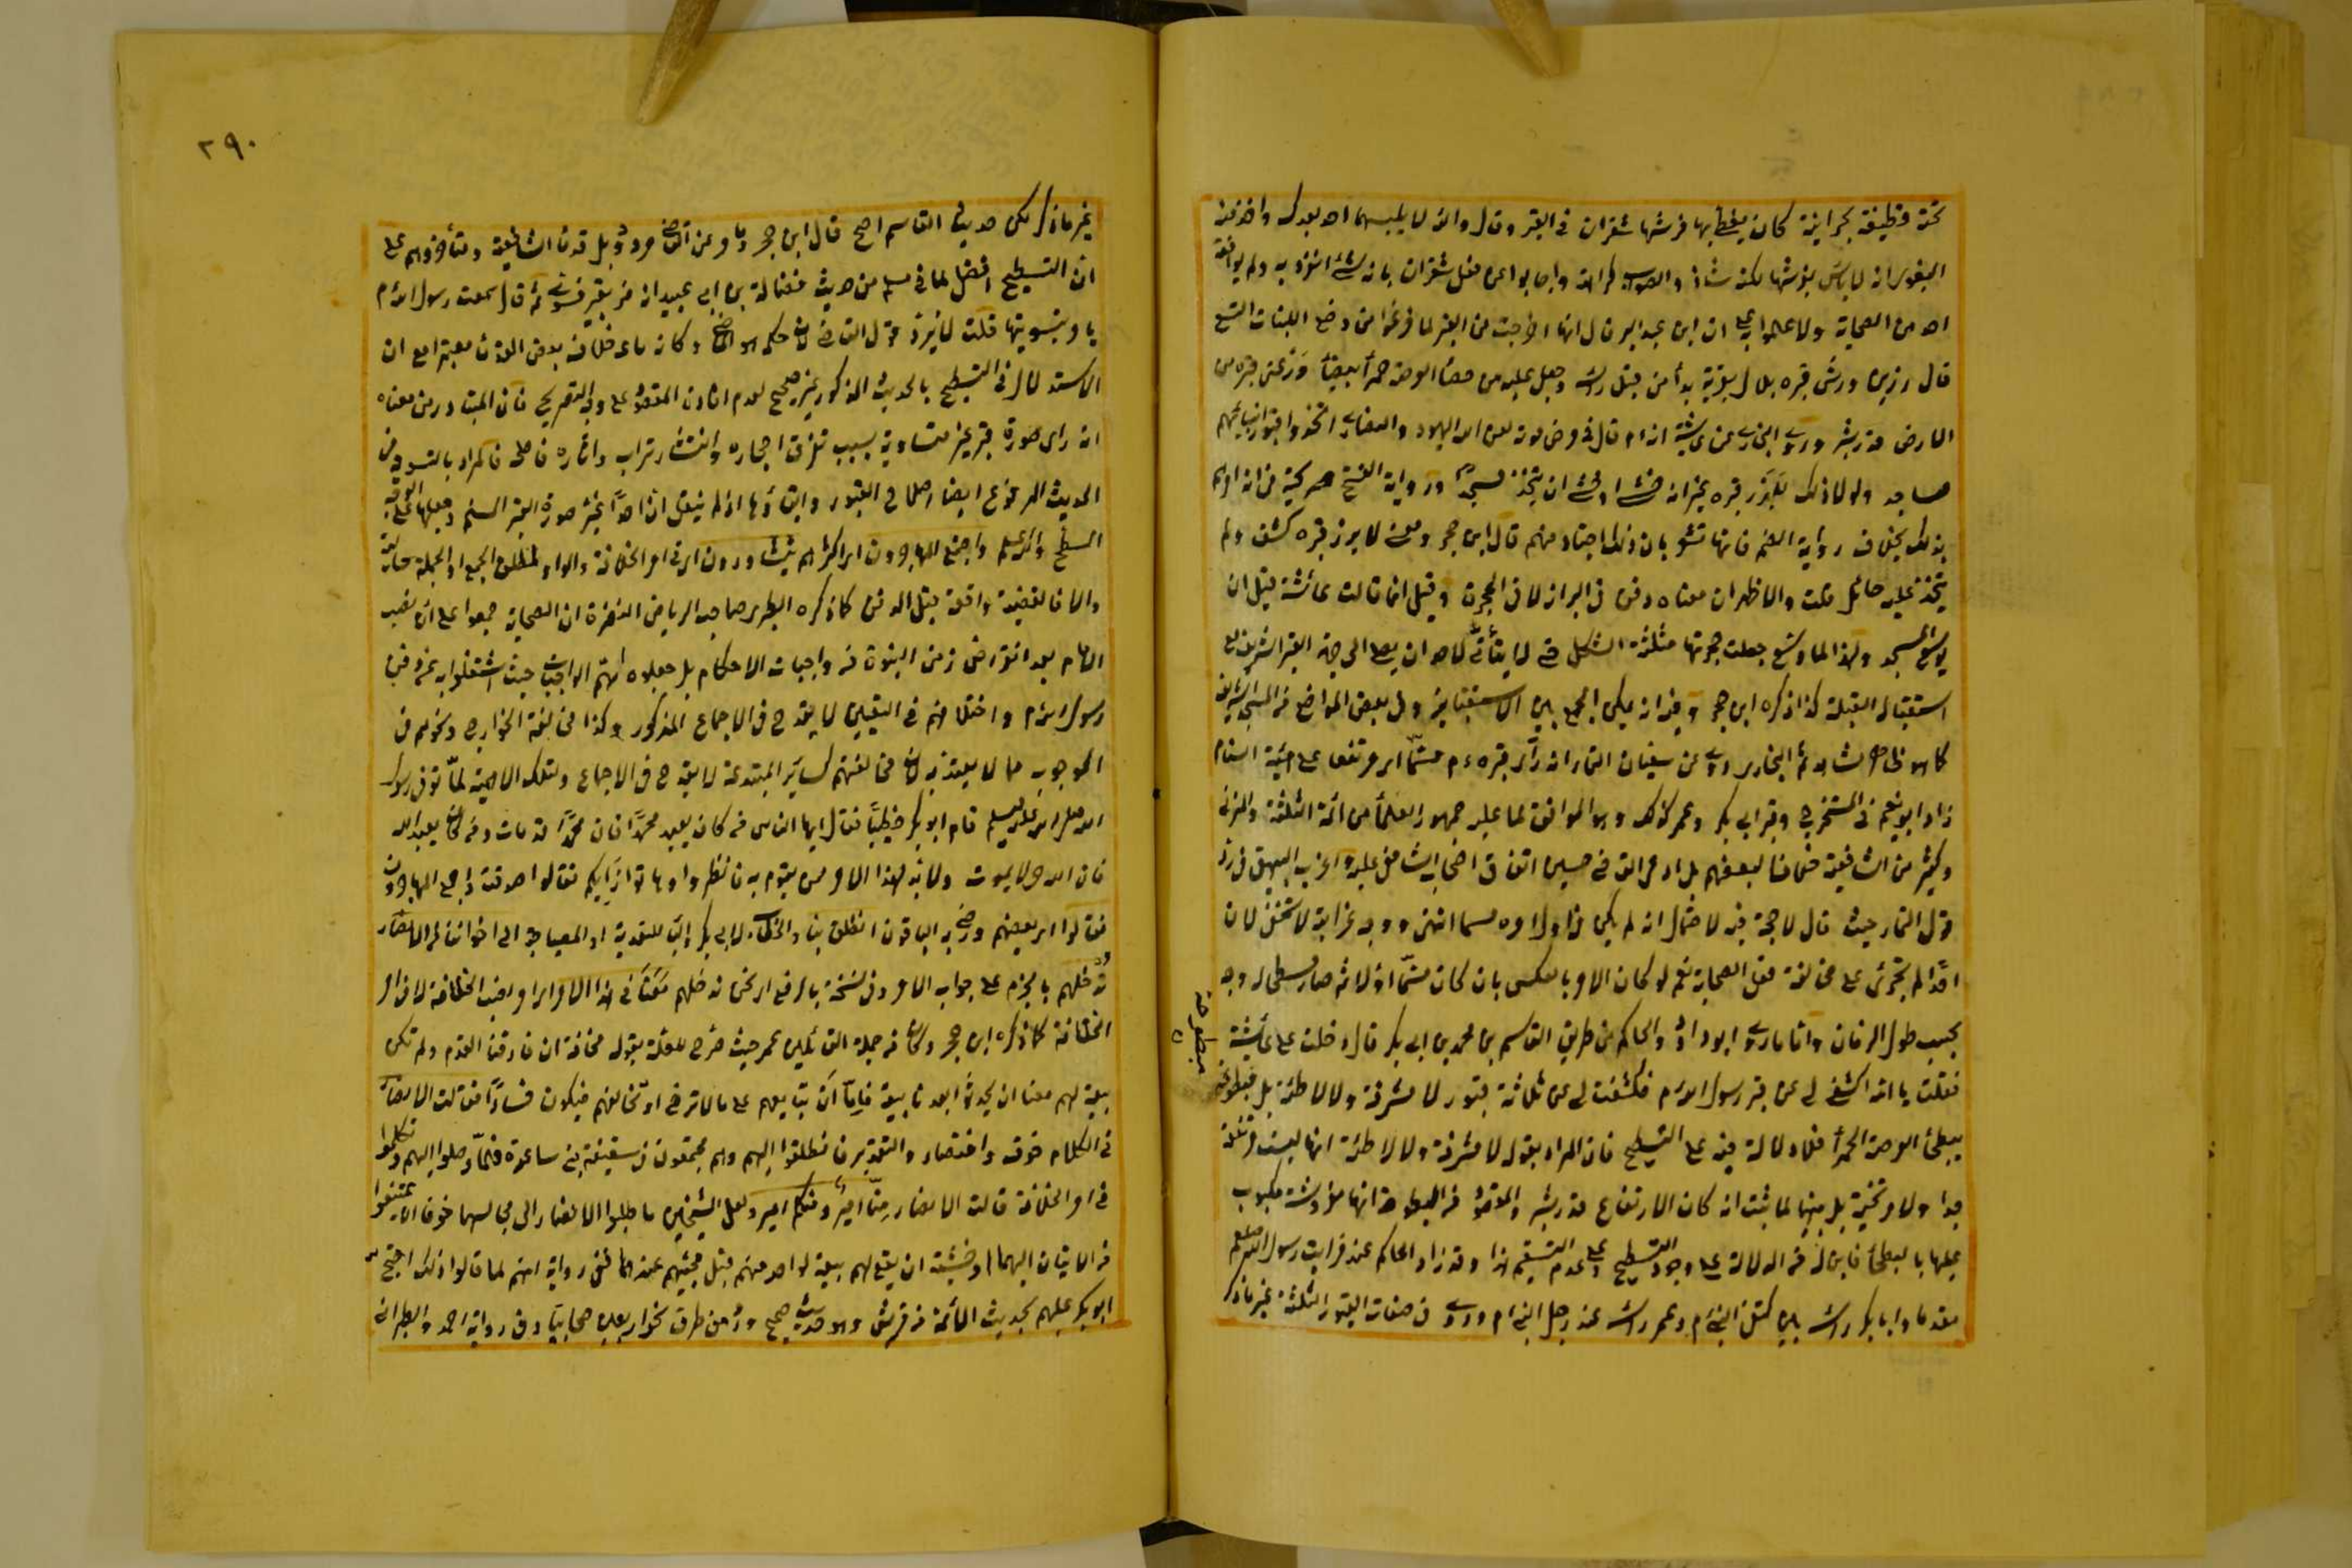 تحته قطيفة بحرانية كان يغطى بها فرشها شقران في القبر وقال والله لا يلبسها احد بعدك واخذ منه
البغوي انه لا بأس بفرشها لكنه شاذ والصواب كراهته واجابوا عن فعل شقران بانه شئ انفرد به ولم يوافقه
احد من الصحابة ولا علموا به على ان ابن عبد البر قال انها اخرجت من القبر لما فرغوا من وضع اللبنات التسع
قال رزين ورش قبره بلال بقربة بدأ من قبل رأسه وجعل عليه من حصباء العرصة حمراء بيضاء ورفع قبره من
الارض قدر شبر وروى البخاري عن عائشة انه م قال في مرض موته لعن الله اليهود والنصارى اتخذوا قبور انبيائهم
مساجد ولولا ذلك لأبرز قبره غير انه خشي او خشي ان يتخذ مسجدا ورواية الفتح صريحة في انه امرهم
بذلك بخلاف رواية الضم فانها تشعر بان ذلك اجتهاد منهم قال ابن حجر ومعنى لابرز قبره كشف ولم
يتخذ عليه حائل قلت والاظهر ان معناه دفن في البراز لا في الحجرة وقيل انما قالت عائشة قبل ان
يوسع المسجد ولهذا لما وسع جعلت حجرتها مثلثة الشكل حتى لا يتأتى لاحد ان يصلي الى جهة القبر الشريف مع
استقبال القبلة كذا ذكره ابن حجر وفيه انه يمكن الجمع بين الاستقبالين في بعض المواضع من المسجد الشريف
كما هو ظاهر مشاهد ثم البخاري روى عن سفيان التمار انه رأى قبره م مسنما اي مرتفعا على هيئة السنام
زاد ابو نعيم في المستخرج وقبر ابي بكر وعمر كذلك وهو الموافق لما عليه جمهور العلماء من ائمة الثلثة والمزني
وكثير من الشافعية خلافا لبعضهم بل ادعى القاضي حسين اتفاق اصحاب الشافعي عليه واغرب البيهقي في رد
قول التمار حيث قال لا حجة فيه لاحتمال انه لم يكن في اول امره مسنما انتهى ووجه غرابته لا تخفى لان
احدا لم يجترئ على مخالفة فعل الصحابة نعم لو كان الامر بالعكس بان كان مسنما اولا ثم صار مسطحا له وجه
بحسب طول الزمان واما ما روى ابو داود والحاكم من طريق القاسم بن محمد بن ابي بكر قال دخلت على عائشة
فقلت يا امه اكشفي لي عن قبر رسول الله م فكشفت لي عن ثلاثة قبور لا مشرفة ولا لاطئة بل مبطوحة
ببطحاء العرصة الحمراء فلا دلالة فيه على التسطيح فان المراد بقوله لا مشرفة ولا لاطئة انها ليست مرتفعة
جدا ولا منخفضة بل بينهما لما ثبت انه كان الارتفاع قدر شبر والمقصود من المبطوحة انها مفروشة مكبوب
عليها بالبطحاء فاين له الدلالة على وجود التسطيح وعلى عدم التسنيم هذا وقد زاد الحاكم عنه فرايت رسول الله صلعم
مقدما وابا بكر رأسه بين كتفي النبي م وعمر رأسه عند رجل النبي م وروى في صفات القبور الثلثة غير ما ذكر
مبطوحة
٢٩٠
غير ما ذكر لكن حديث القاسم اصح قال ابن حجر وما مر عن القاضي مردود بل قدماء الشافعية ومتأخروهم على
ان التسطيح افضل لما في مسلم من حديث فضالة بن ابي عبيد انه مر بقبر فسوي ثم قال سمعت رسول الله م
يأمر بتسويتها قلت لا يرد قول القاضي لانه حكم هو الماضي وكان ما عد خلافه بدون القدماء معتبرا مع ان
الاستدلال في التسطيح بالحديث المذكور غير صحيح لعدم افادته المقصود على وجه التصريح فان المتبادر من معناه
انه راى صورة قبر غير متساوية بسبب تفرق احجاره وانتشار تراب واثاره فاصلحه فالمراد بالتسوية في
الحديث المرفوع ايضا اصلاح القبور وابقاؤها اذ لم ينقل ان احدا غير صورة القبر المسنم وجعلها على القبر
المسطح والله اعلم واجتمع المهاجرون اي اكثرهم يتشاورون اي في امر الخلافة والواو لمطلق الجمع او الجملة حالية
والا فالقضية واقعة قبل الدفن كما ذكره الطبري صاحب الرياض النضرة ان الصحابة جمعوا على ان نصب
الامام بعد انقراض زمن النبوة من واجبات الاحكام بل جعلوه اهم الواجبات حيث اشتغلوا به عن دفن
رسول الله م واختلافهم في التعيين لا يقدح في الاجماع المذكور وكذا مخالفة الخوارج ونحوهم في
الوجوب مما لا يعتد به لان مخالفتهم كسائر المبتدعة لا يقدح في الاجماع ولتلك الاهمية لما توفى رسول
الله صلى الله عليه وسلم قام ابو بكر خطيبا فقال ايها الناس من كان يعبد محمدا فان محمدا قد مات ومن كان يعبد الله
فان الله حي لا يموت ولا بد لهذا الامر ممن يقوم به فانظروا وهاتوا رأيكم فقالوا صدقت واجتمع المهاجرون
فقالوا اي بعضهم ورضي به الباقون انطلق بنا والخطاب لابي بكر والباء للتعدية او للمصاحبة الى اخواننا من الانصار
ندخلهم بالجزم على جواب الامر وفي نسخة بالرفع اي نحن ندخلهم معنا في هذا الامر اي امر نصب الخلافة لا في امر
الخلافة كما ذكره ابن حجر وكان من جملة القائلين عمر حيث صرح بعلته بقوله مخافة ان فارقنا القوم ولم تكن
بيعة لهم معنا ان يحدثوا بعدنا بيعة فاما ان نتابعهم على ما لا نرضى او نخالفهم فيكون فسادا فقالت الانصار
في الكلام حذف واختصار والتقدير فانطلقوا اليهم وهم مجتمعون في سقيفة بني ساعدة فلما وصلوا اليهم وتكلموا
في امر الخلافة قالت الانصار منا امير ومنكم امير ولعل الشيخين ما طلبوا الانصار الى مجلسهما خوفا ان يمتنعوا
من الاتيان اليهما او خشية ان يقع لهم بيعة لواحد منهم قبل مجيئهم عندهما ففي رواية انهم لما قالوا ذلك احتج
ابو بكر عليهم بحديث الائمة من قريش وهو حديث صحيح ورد من طرق نحو اربعين صحابيا وفي رواية احمد والطبراني